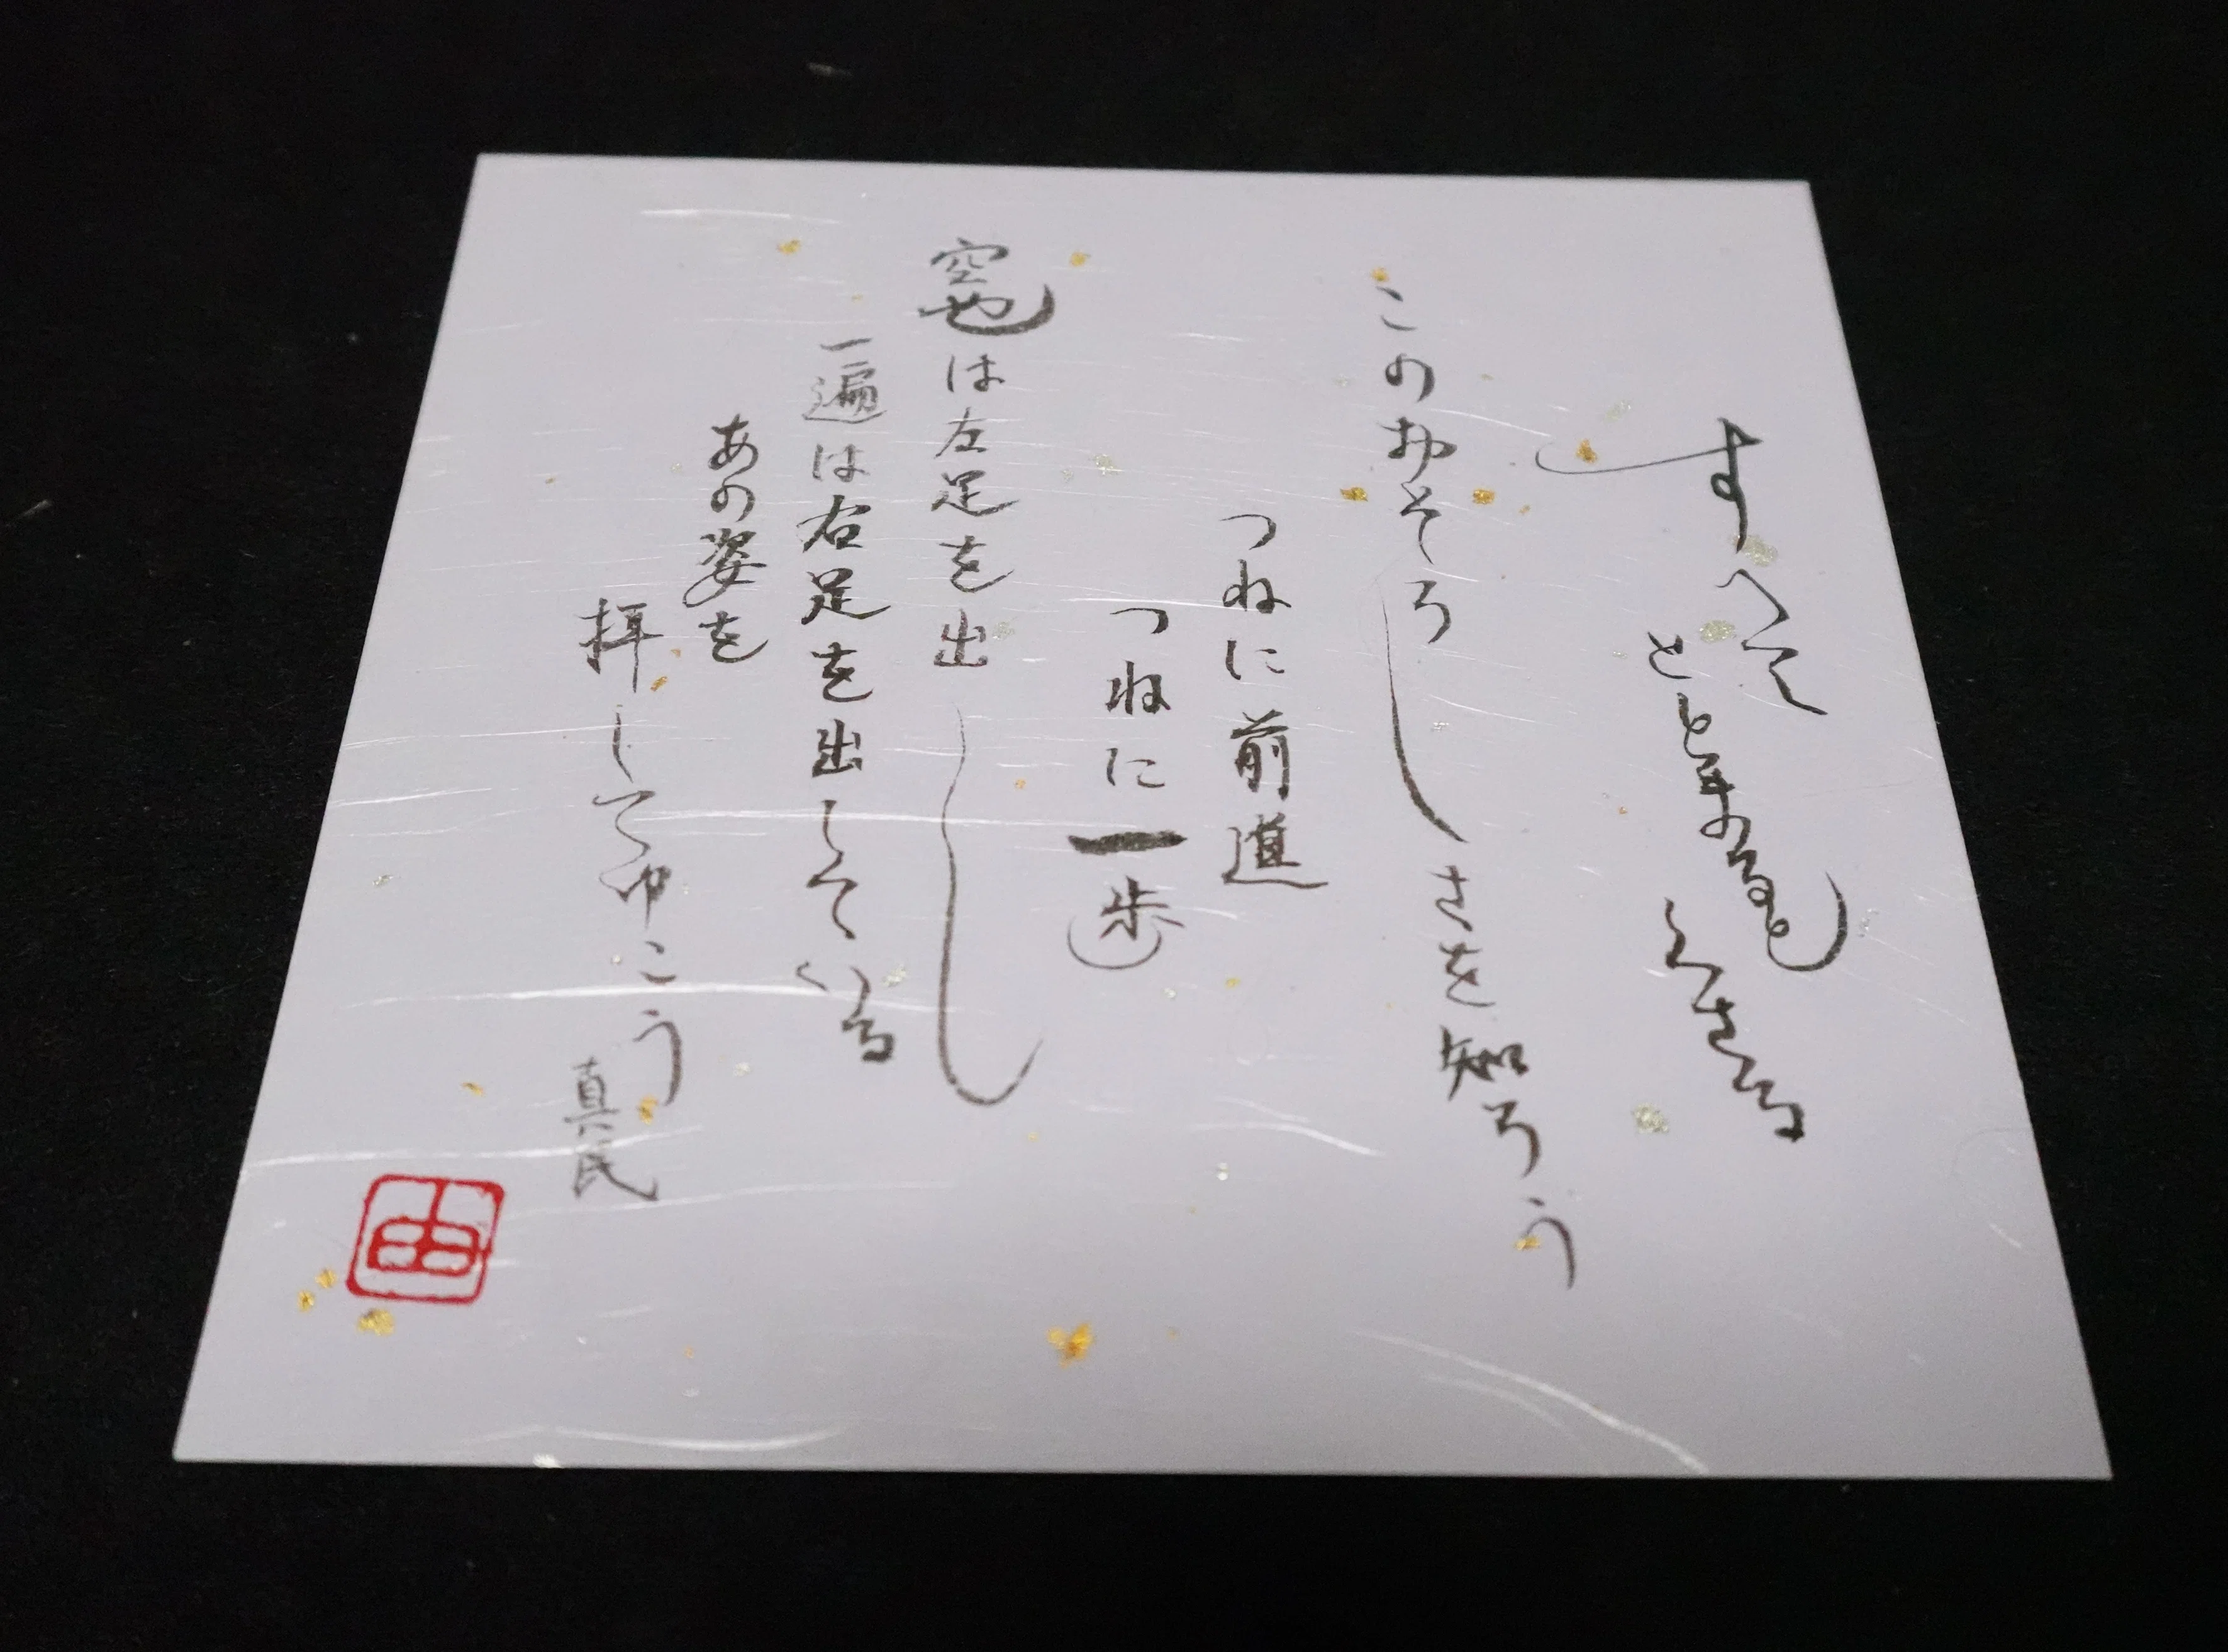 すへて
ととまると
くさる
このおそろしさを知ろう
つねに前進
つねに一歩
空也は左足を出し
一遍は右足を出している
あの姿を
拝してゆこう
真民
由